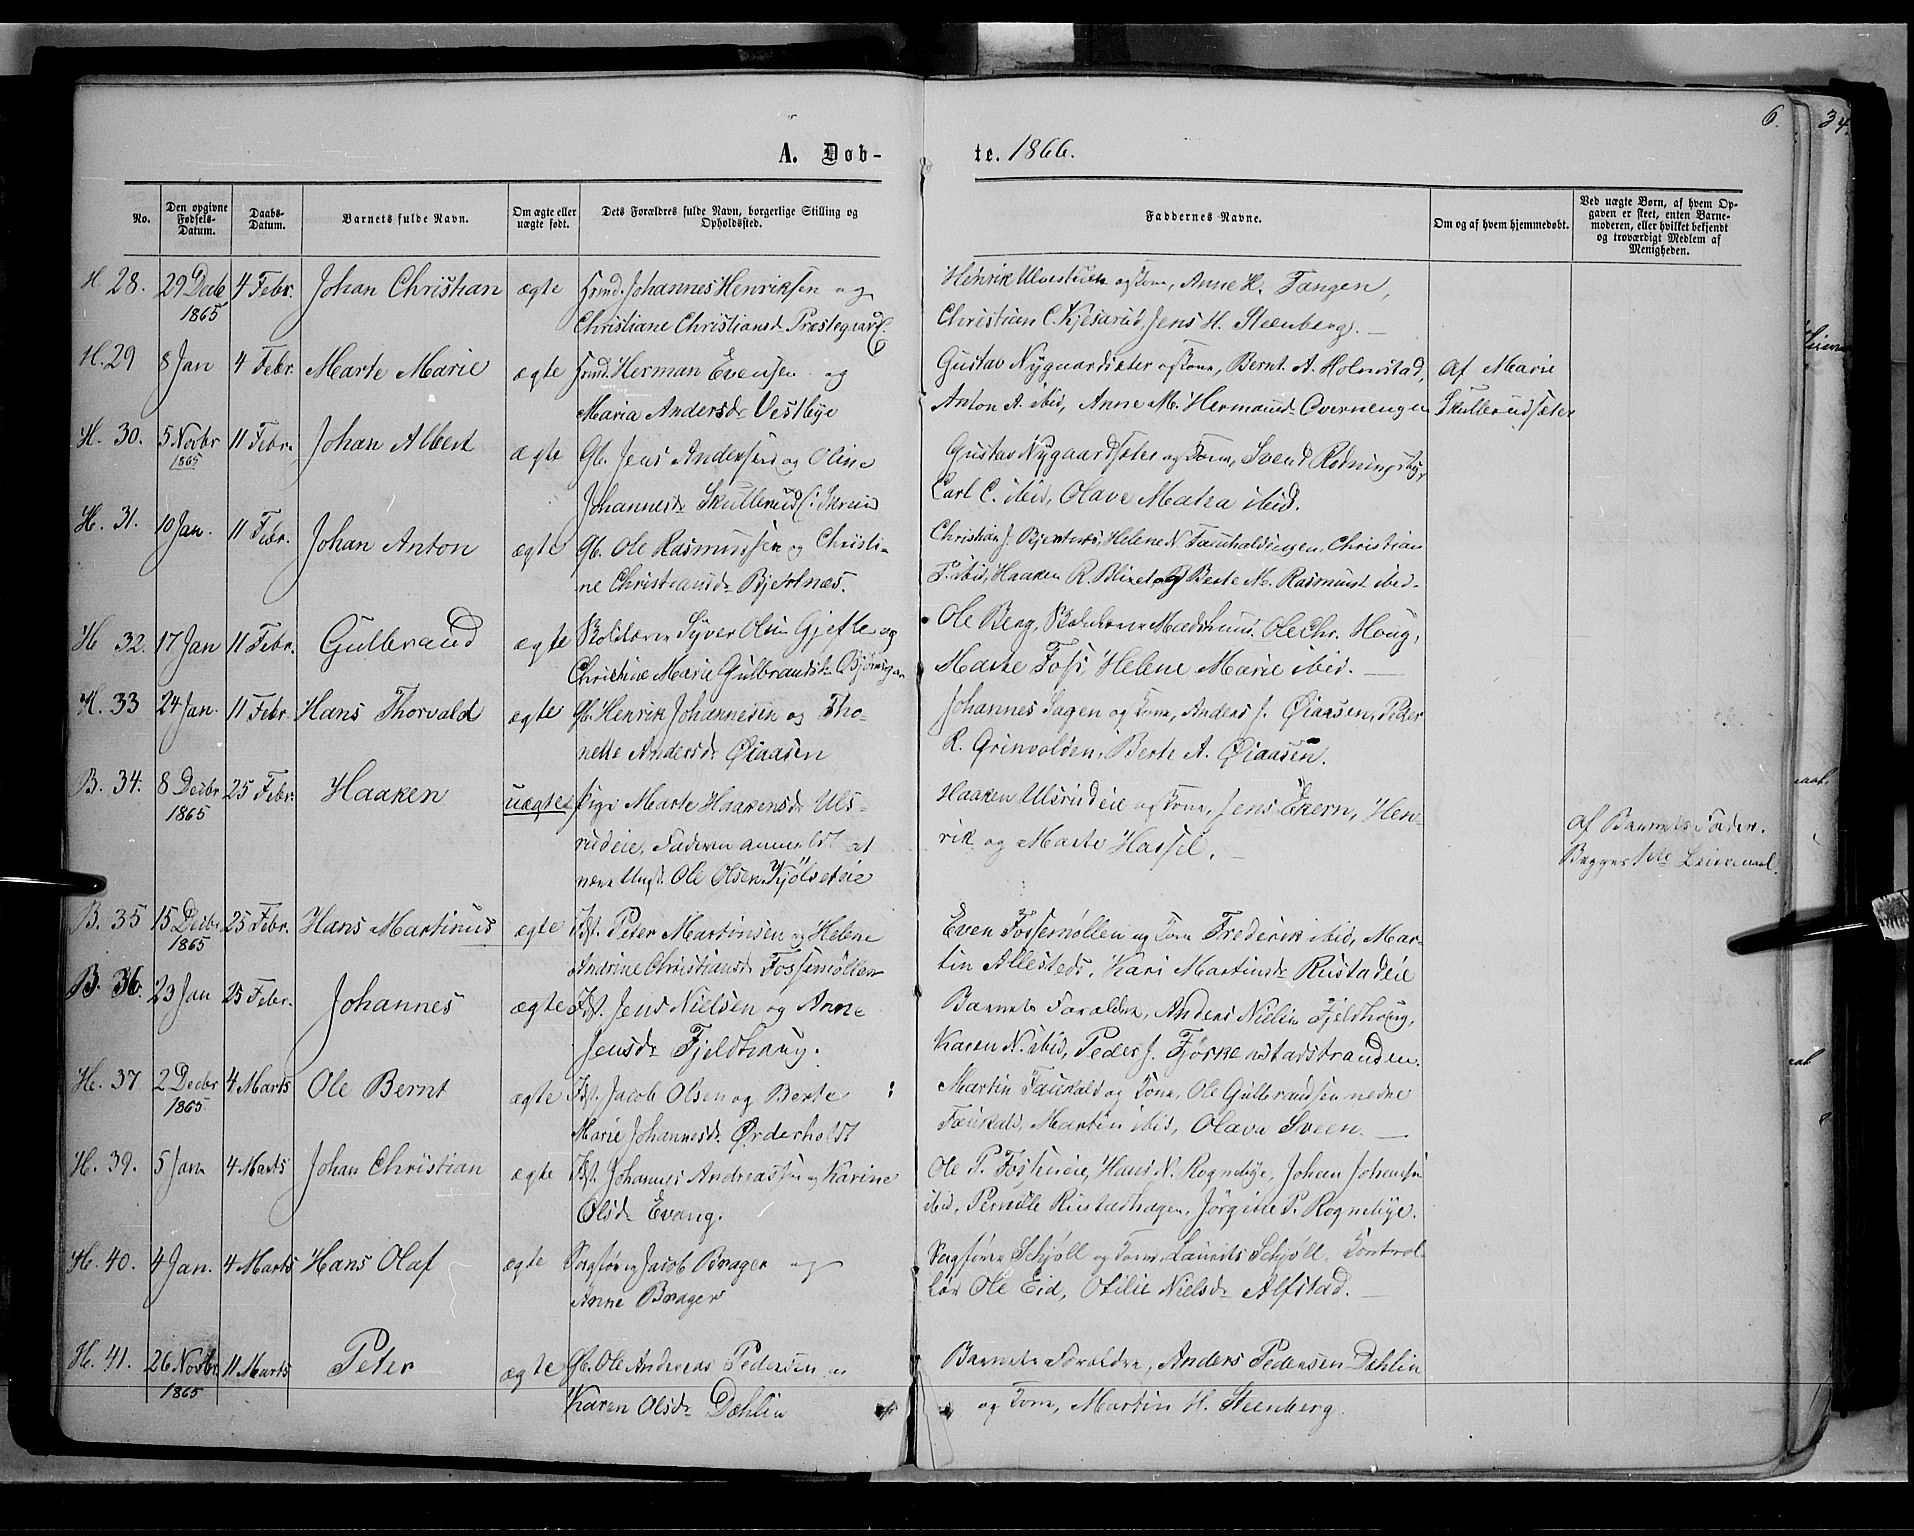 6. 34.
A. Døb- te. 1866.
No.
Den opgivne Fødsels-Datum.
Daabs-Datum.
Barnets fulde Navn.
Om ægte eller uægte født.
Dets Forældres fulde Navn, borgerlige Stilling og Opholdssted.
Faddernes Navne.
Om og af hvem hjemmedøbt.
Ved uægte Børn, af hvem Opgaven er skeet, enten Barnemoderen, eller hvilket bekjendt og troværdigt Medlem af Menigheden.
H. 28. 29 Decb 4 Febr. Johan Christian ægte Johannes Henriksen og Henrik og Kone, Anne H. Tangen,
1865 Christiane Christiansd. Præstegaard Christian C. Kjeserud, Jens H. Steenberg. —
H. 29 8 Jan 4 Febr. Marte Marie ægte Herman Evensen og Gustav Nygaardsæter og Kone, Bernt A. Holmstad, af Marie
Maria Andersd. Vestbye Anton A. ibid, Anne M. Hermansd. Overnengen Skullerudsæter
H. 30. 5 Novbr 11 Febr. Johan Albert ægte Gb. Jens Andersen og Oline Gustav Nygaardsæter og Kone, Svend Rødningsby,
1865 Johannesd. Skullerud Carl C. ibid, Olave Matea ibid.
H. 31. 10 Jan. 11 Febr. Johan Anton ægte Gb. Ole Rasmussen og Christi- Christian J. Bjertnæs, Helene N. Christian
ne Christiansd. Bjertnæs. P. ibid, Haaken R. og Berte M. Rasmusd. ibid.
H 32. 17 Jan 11 Febr. Gulbrand ægte Syver Olsen Gjefle og Ole Berg, Ole Chr. Houg,
Christine Marie Gulbrandsd. Marte Foss, Helene Marie ibid. —
H. 33 24 Jan. 11 Febr. Hans Thorvald ægte Gb. Henrik Johannesen og Tho- Johannes Sagen og Kone, Anders J. Øiaasen, Peter
nette Andersd. Øiaasen R. Grinvolden, Berte A. Øiaasen.
B. 34. 8 Decbr 25 Febr. Haaken uægte Pige Marte Haakensd. Uls- Haaken Ulsrudeie og Kone, Jens Ekern, Hen-
1865 rudeie, Faderen anmeldt at rik og Marte Hassel. — af Barnets Fader.
være Ungk. Ole Olsen Kjølseteie Begges 1ste Leiermaal.
B. 35 15 Decbr 25 Febr. Hans Martinus ægte Peter Martinsen og Helene Even Fossemøllen og Kone Frederik ibid, Mar-
1865 Andrine Christiansd. Fossemøllen tin Allestad, Kari Martinsd. Rustadeie
B. 36. 23 Jan 25 Febr. Johannes ægte Jens Nielsen og Anne Barnets Forældre, Anders Nielsen Fjeldhoug,
Jensd. Fjeldhaug. Karen N. ibid, Peder J.
H. 37 2 Decbr 4 Marts Ole Bernt ægte Jacob Olsen og Berte Martin Faukald og Kone, Ole Gulbrandsen nedre
1865. Marie Johannesd. Ørderholst Faukald, Martin ibid, Olava Sveen. —
H. 39. 5 Jan 4 Marts Johan Christian ægte Johannes Andreassen og Karine Ole P. Hans N. Rognebye, Johan Johansen
Olsd. Evang. ibid, Pernille Rustadhagen, Jørgine P. Rognebye.
H. 40. 4 Jan. 4 Marts Hans Olaf ægte Sagfører Jacob Brager og Sagfører Schjøll og Kone, Laurits Schjøll, Kontrol-
Anne Brager lør Ole Eid, Otilie Nielsd. Alfstad. —
H. 41. 26 Novbr. 11 Marts Peter ægte Gb. Ole Andreas Pedersen og Barnets Forældre, Anders Pedersen Dehlin
1865 Karen Olsd. Dæhlin og Kone, Martin H. Steenberg.